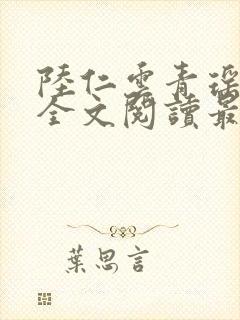 陸仁雲青瑶
全文閱讀最
葉思言